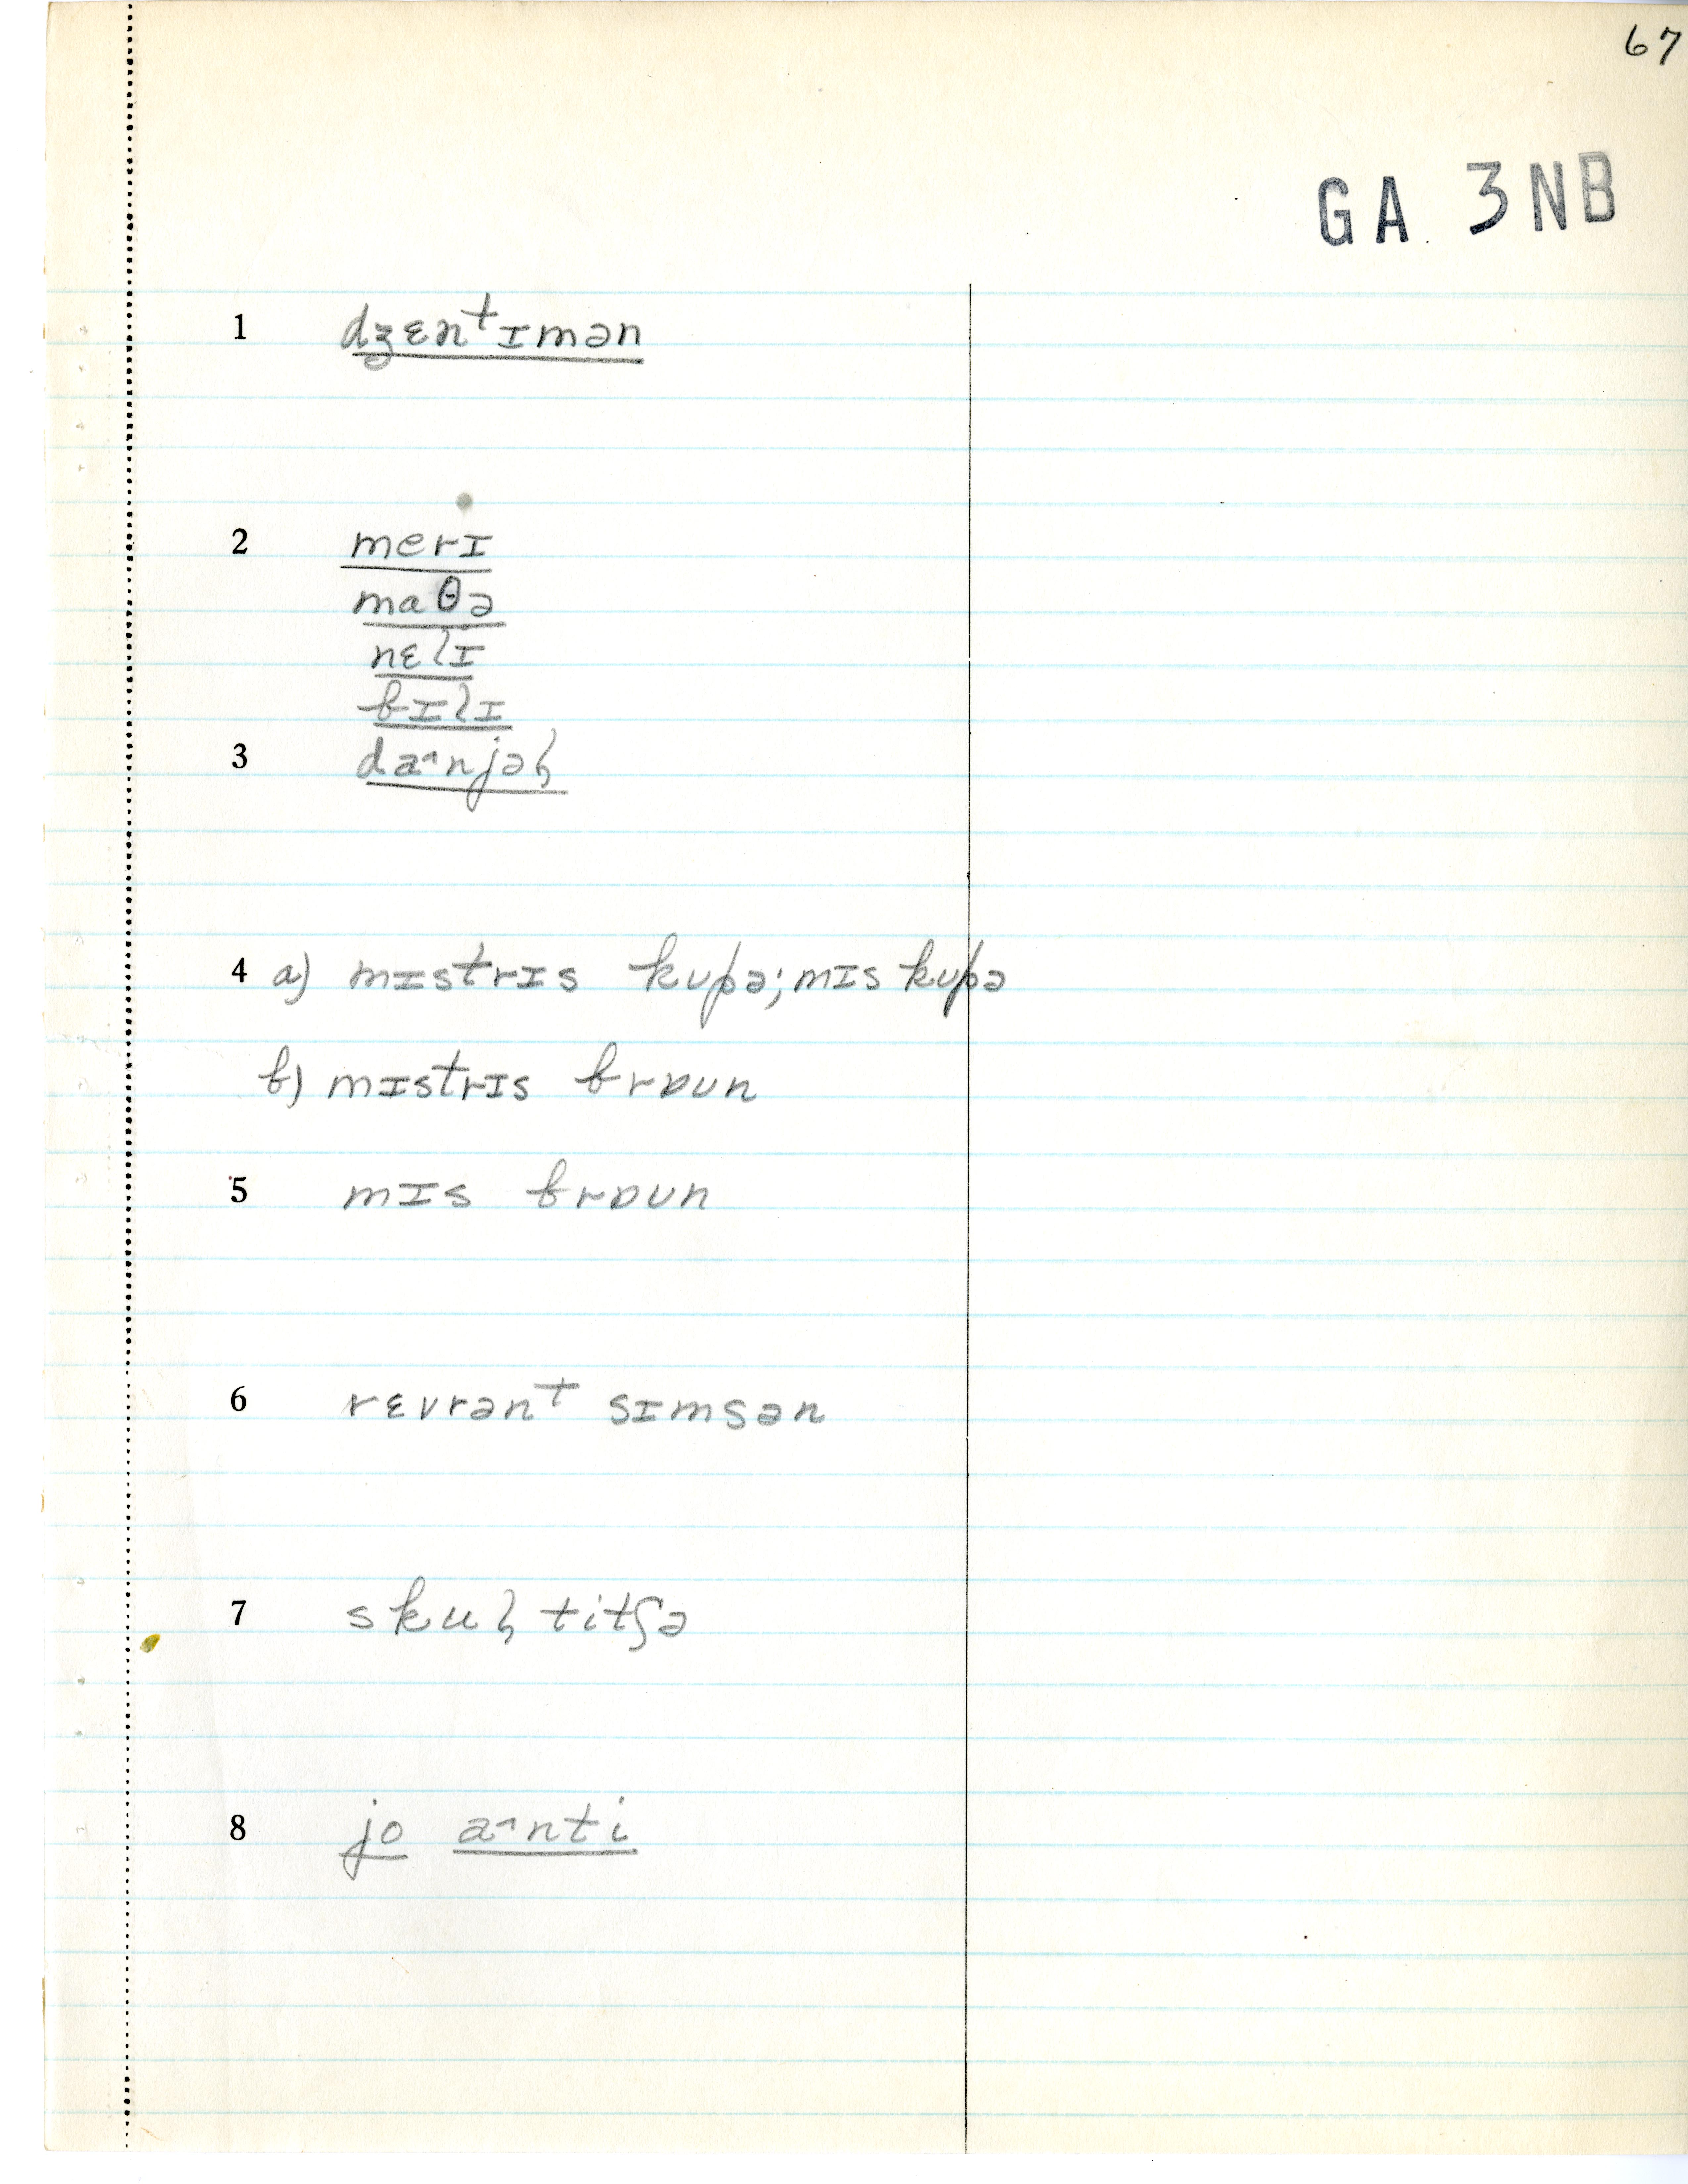 67
GA 3NB
1 dʒɛnᵗɪmən
2 merɪ
maθə
nɛlɪ
bɪlɪ
3 da˄njəɫ
4 a) mɪstrɪs kupə; mɪs kupə
b) mɪstrɪs brɒun
5 mɪs brɒun
6 rɛvrənᵗ sɪmsən
7 skuɫ titʃə
8 jo a˄nti